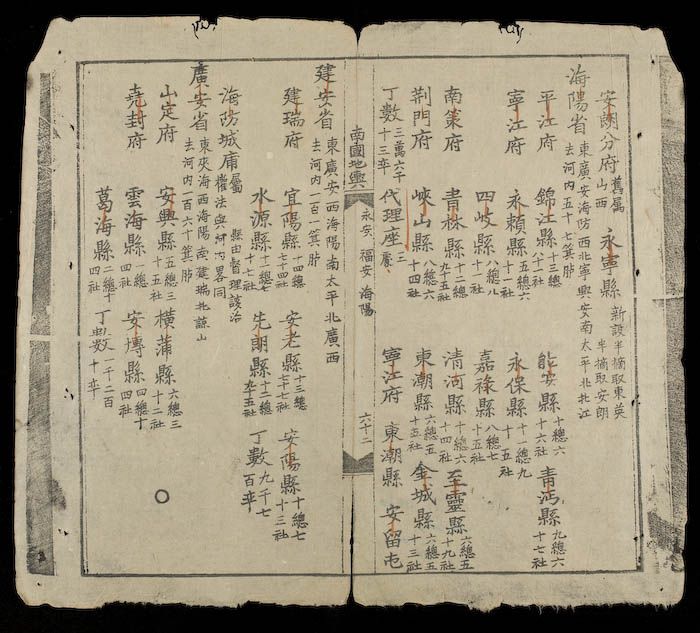 安朗分府 舊屬山西 永寧縣 新設半摘取東英半摘取安朗
海陽省 東廣安海防西北寧興安南太平北北江去河内五十七箕𦙶
平江府 錦江縣 十三總八十一社 能安縣 十總六十六社 青沔縣 九總六十七社
寧江府 永賴縣 五總六十一社 永保縣 十一總九十五社
四岐縣 八總八十一社 嘉祿縣 八總七十五社
南策府 青林縣 十二總九十五社 清河縣 十總六十四社 至靈縣 六總五十九社
荆門府 峽山縣 八總六十四社 東潮縣 六總五十五社 金城縣 六總五十三社
丁數 三萬六千十三卒 代理座 三處 寧江府 東潮縣 安留屯
南國地輿 永安 福安 海陽 六十二
建安省 東廣安西海陽南太平北廣西去河内一百一箕𦙶
建瑞府 宜陽縣 十四總七十四社 安老縣 十三總七十七社 安陽縣 十總七十三社
水源縣 十二總七十七社 先朗縣 十二總九十五社 丁數 九千七百卒
海防城庯 屬權法與河内畧同 縣由督理該治
廣安省 東夾海西海陽南建瑞北諒山去河内一百六十箕𦙶
山定府 安興縣 五總三十五社 橫蒲縣 六總三十二社
堯封府 雲海縣 一總四社 安塼縣 四總十四社
葛海縣 二總十四社 丁數 一千二百十卒